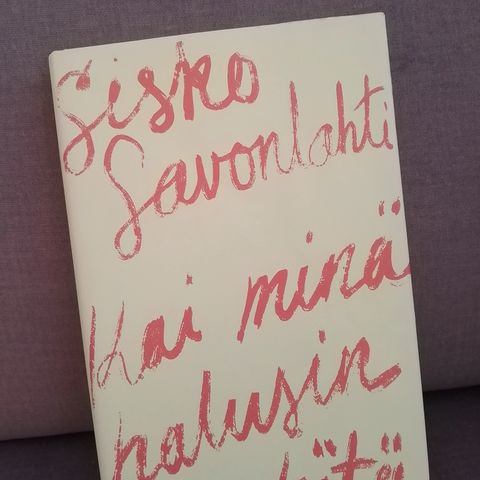 Sisko
Savonlahti
Kai minä
halusin